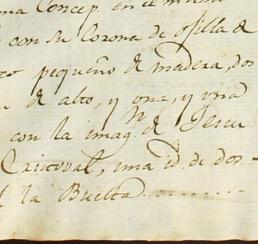 na Concep. en el mismo
con su Corona de ojilla de
pequeño de madera, dos
de alto, y una, y una
con la imagn. de Jesu
Cristoval, una id. de dos-
la Buelta